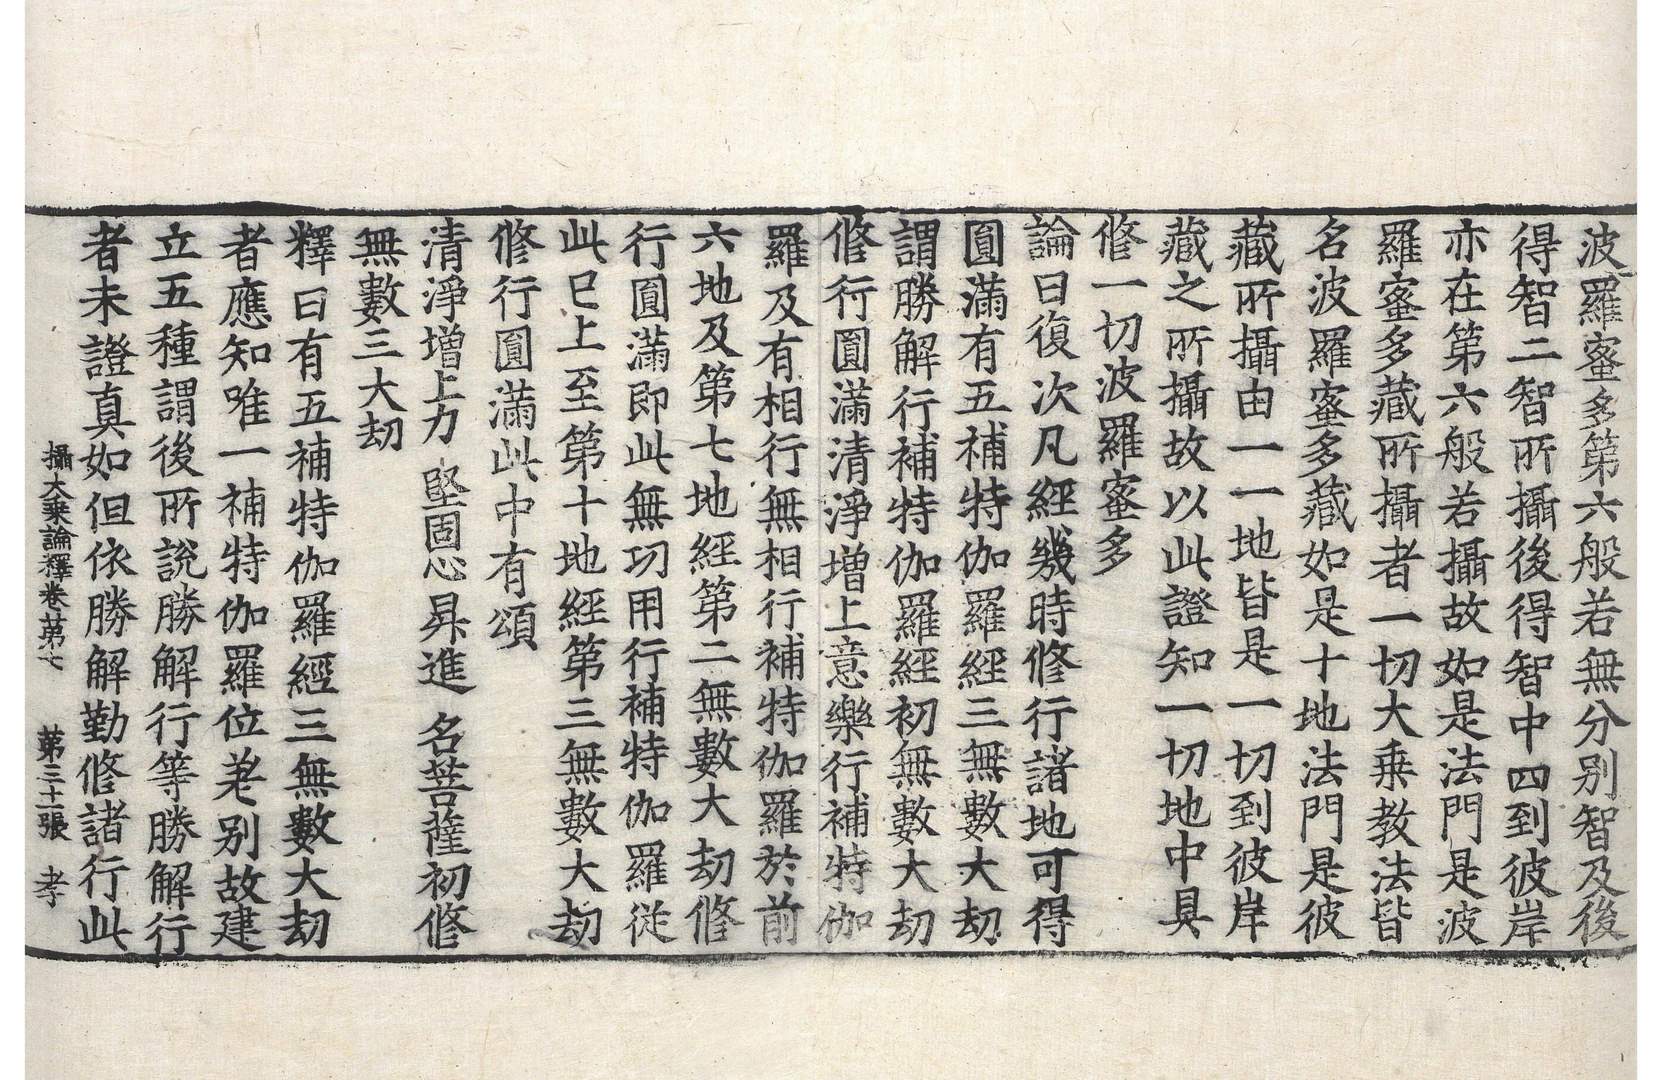 波羅蜜多第六般若無分別智及後
得智二智所攝後得智中四到彼岸
亦在第六般若攝故如是法門是波
羅蜜多藏所攝者一切大乗教法皆
名波羅蜜多藏如是十地法門是彼
藏所攝由一一地皆是一切到彼岸
藏之所攝故以此證知一切地中具
修一切波羅蜜多
論曰復次凡經幾時修行諸地可得
圓滿有五補特伽羅經三無數大劫
謂勝解行補特伽羅經初無數大劫
修行圓滿清淨增上意樂行補特伽
羅及有相行無相行補特伽羅於前
六地及第七地經第二無數大劫修
行圓滿即此無功用行補特伽羅從
此已上至第十地經第三無數大劫
修行圓滿此中有頌
清淨增上力 堅固心昇進 名菩薩初修
無數三大劫
釋曰有五補特伽羅經三無數大劫
者應知唯一補特伽羅位差別故建
立五種謂後所說勝解行等勝解行
者未證真如但依勝解勤修諸行此
攝大乗論釋卷第七 第三十二張 孝